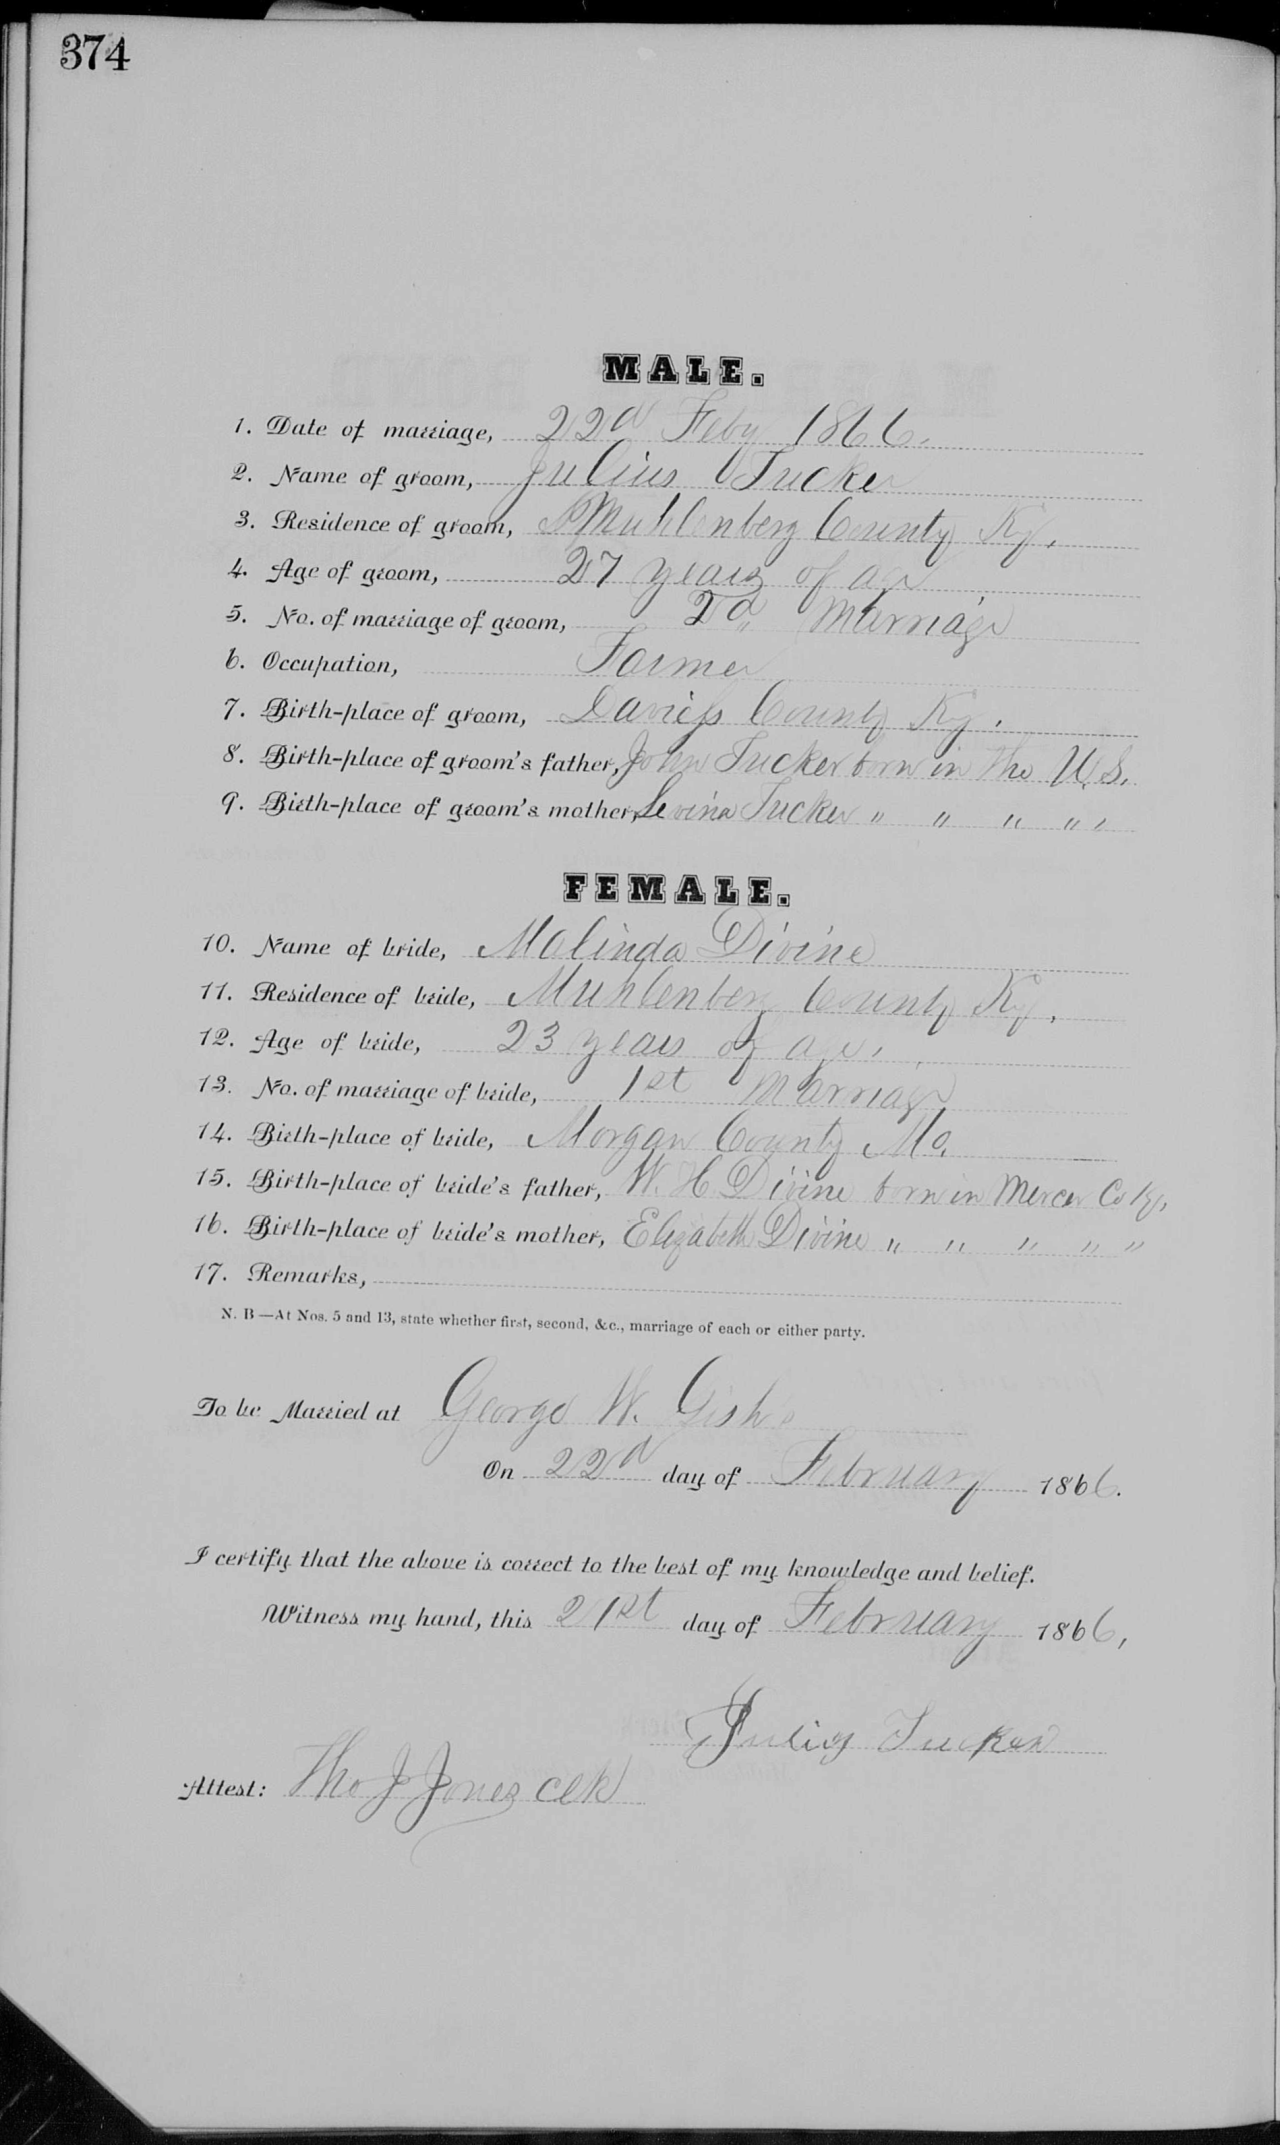 374
MALE.
1. Date of marriage, 22d Feby 1866.
2. Name of groom, Julius Tucker
3. Residence of groom, Muhlenberg County Ky.
4. Age of groom, 27 years of age
5. No. of marriage of groom, 2d Marriage
6. Occupation, Farmer
7. Birth-place of groom, Daviess County Ky.
8. Birth-place of groom's father, John Tucker born in the U.S.
9. Birth-place of groom's mother, Levina Tucker " " " " "
FEMALE.
10. Name of bride, Malinda Divine
11. Residence of bride, Muhlenberg County Ky.
12. Age of bride, 23 years of age.
13. No. of marriage of bride, 1st Marriage
14. Birth-place of bride, Morgan County Mo.
15. Birth-place of bride's father, W. H. Divine born in Mercer Co Ky.
16. Birth-place of bride's mother, Elizabeth Divine " " " " "
17. Remarks,
N. B—At Nos. 5 and 13, state whether first, second, &c., marriage of each or either party.
To be Married at George W. Gish's
On 22d day of February 1866.
I certify that the above is correct to the best of my knowledge and belief.
Witness my hand, this 21st day of February 1866,
Julius Tucker
Attest: Tho J Jones clk